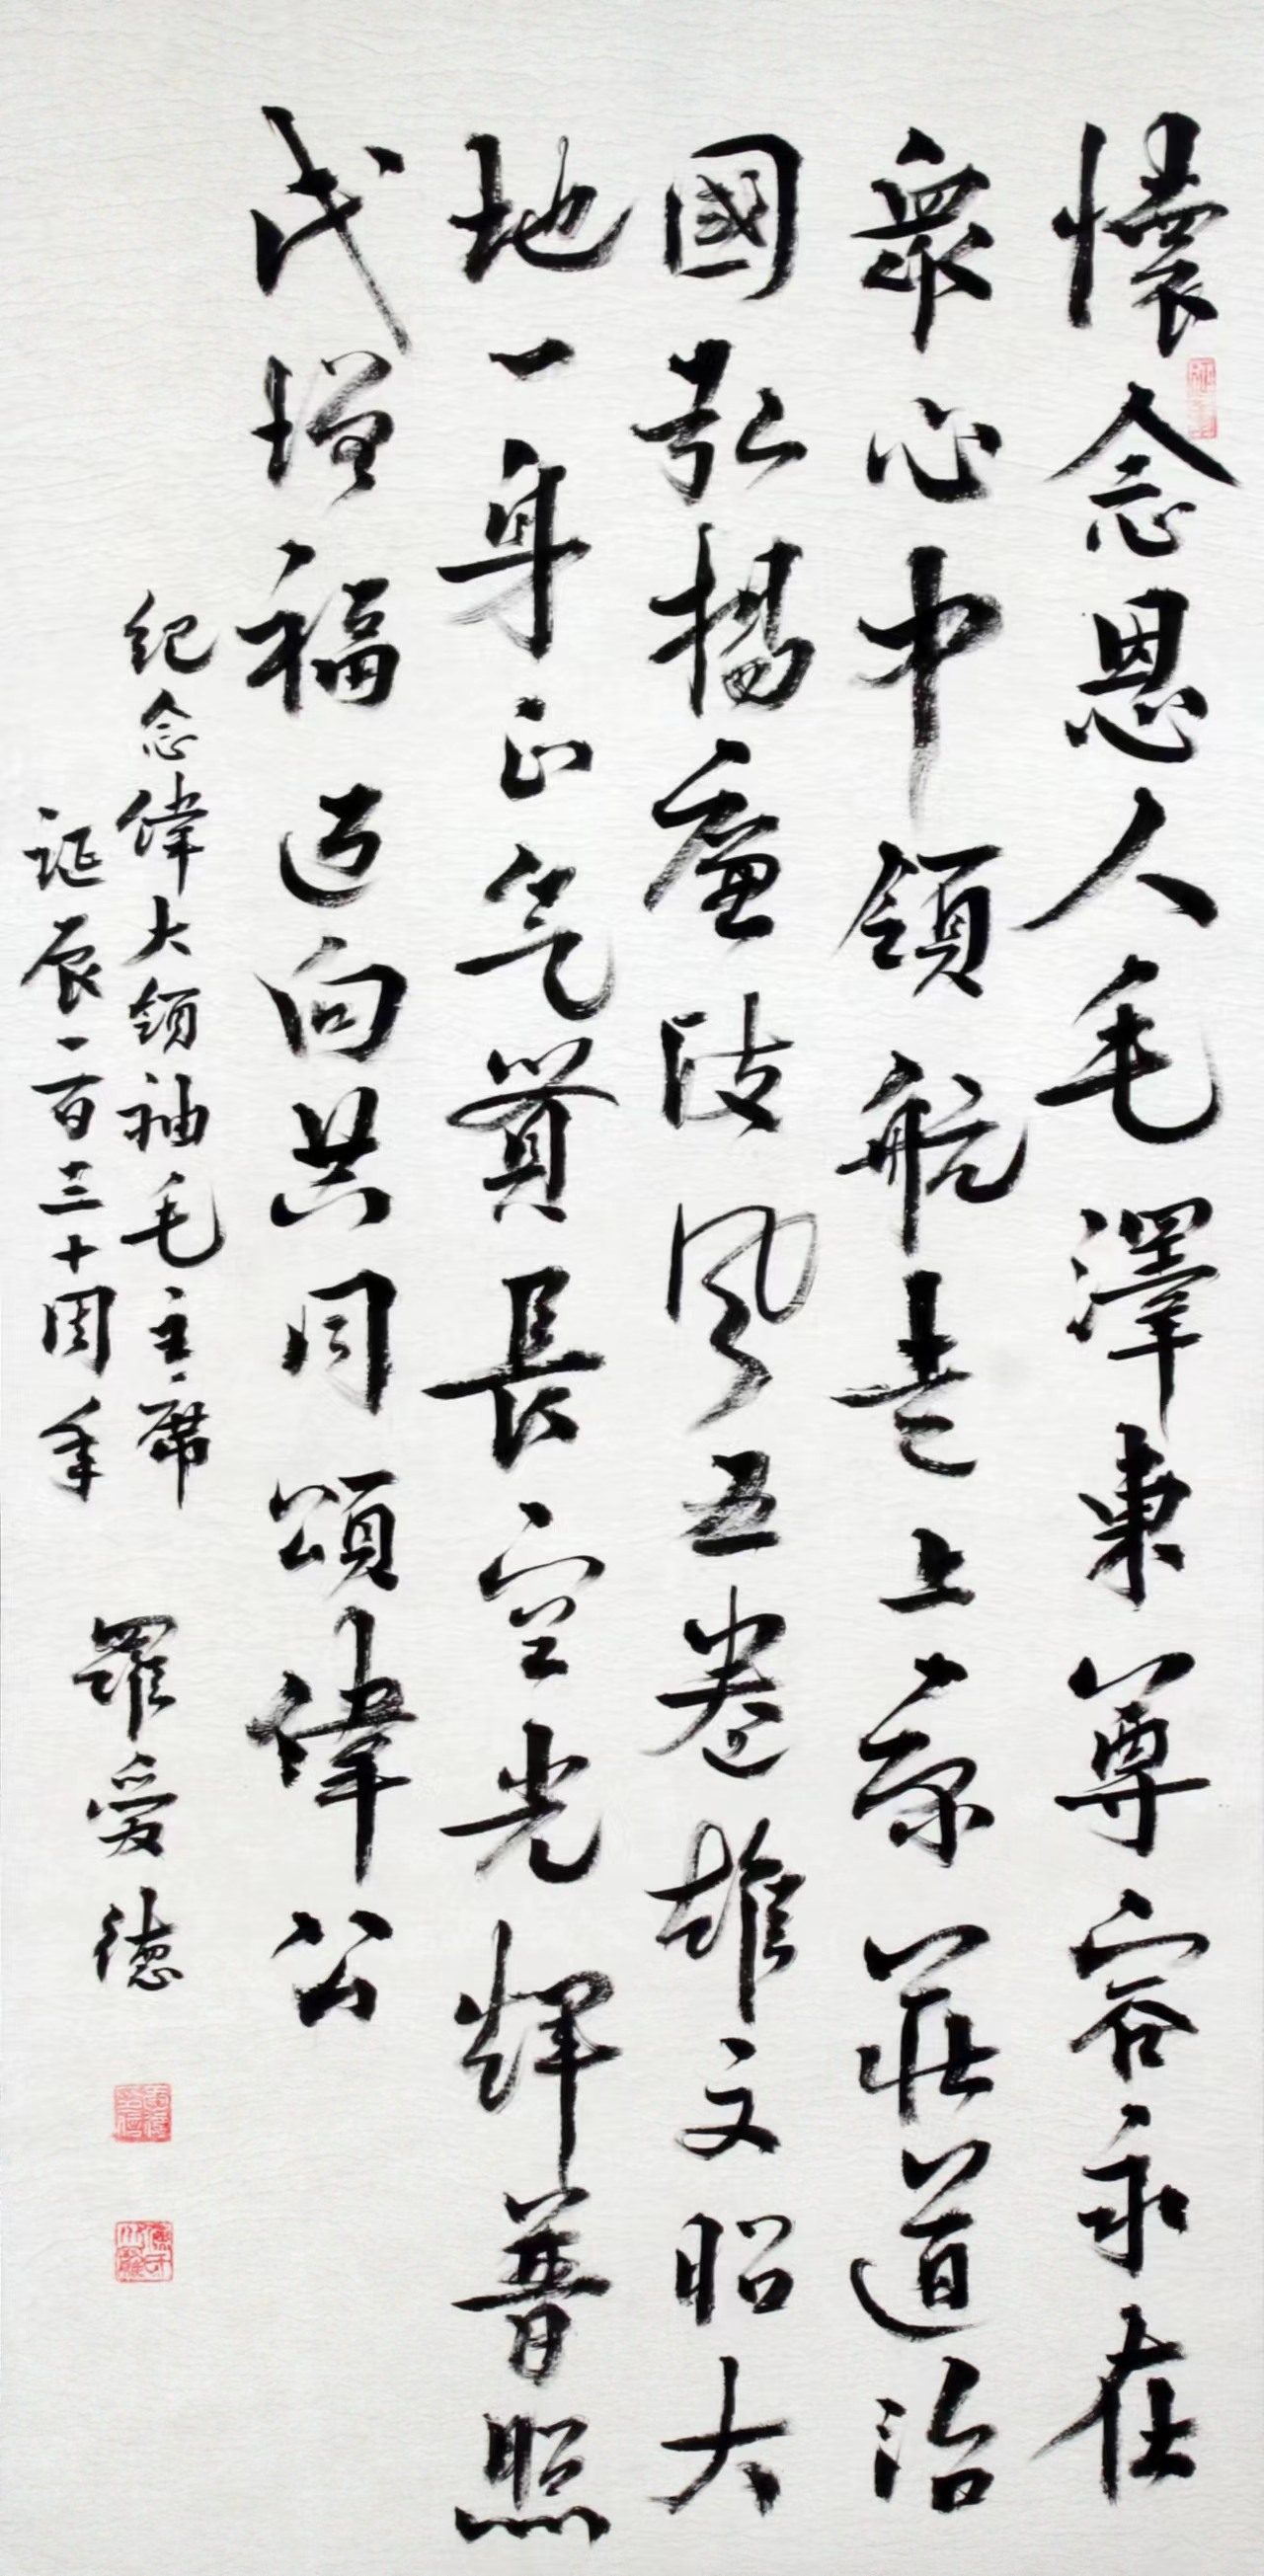 懷念恩人毛澤東尊容永在
衆心中領航走上康莊道治
國弘揚廉政風五卷雄文昭大
地一身正氣貫長空光輝普照
民增福迈向共同頌偉公
紀念偉大領袖毛主席
誕辰一百三十周年
羅愛德